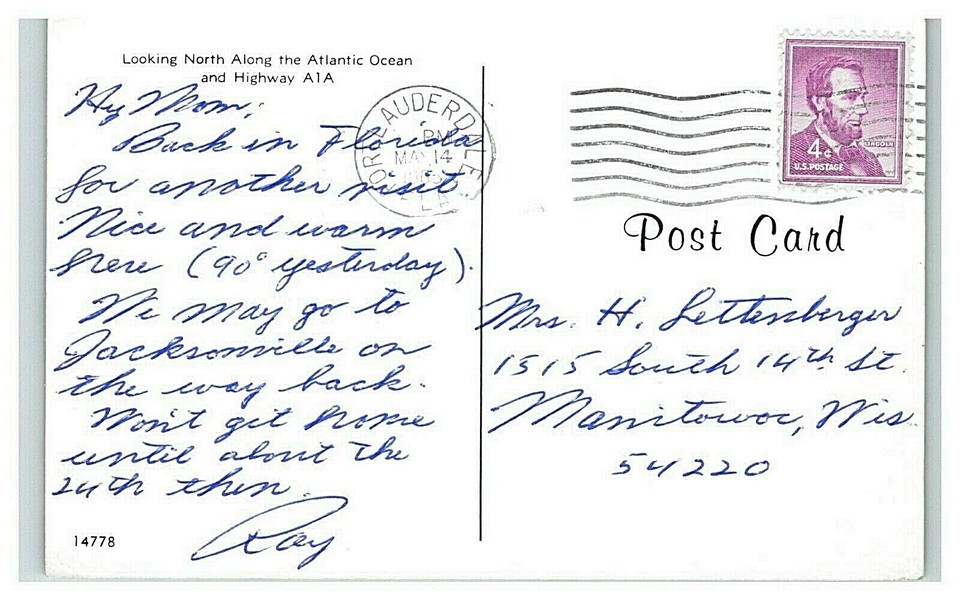 Looking North Along the Atlantic Ocean
and Highway A1A
Hy Mom,
Back in Florida
for another visit
Nice and warm
here (90° yesterday).
We may go to
Jacksonville on
the way back.
Won't get home
until about the
24th then.
Ray
14778
FORT LAUDERDALE
PM
MAY 14
FLA
LINCOLN
4¢
U.S. POSTAGE
Post Card
Mrs. H. Lettenberger
1515 South 14th St.
Manitowoc, Wis.
54220